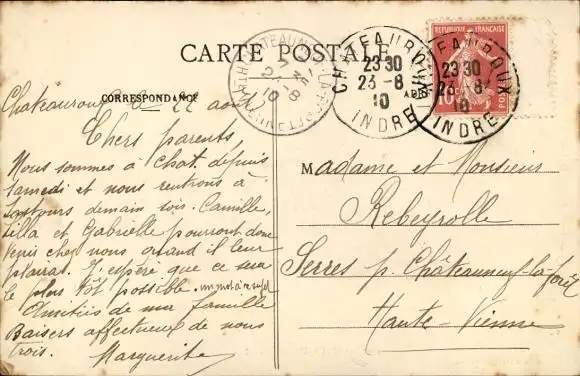 CARTE POSTALE
CORRESPONDANCE
Chateauroux 22 août
Chers parents
Nous sommes à Chat. depuis
samedi et nous rentrons à
demain soir. Camille,
et Gabrielle pourront donc
venir chez nous quand il leur
plairat. J'espère que ce sera
le plus tôt possible. un mot à ce sujet
Amitiés de ma famille
Baisers affectueux de nous
trois. Marguerite
CHATEAUROUX
23 30
23 - 8
10
INDRE
CHATEAUROUX
23 30
23 - 8
10
INDRE
REPUBLIQUE FRANÇAISE
10c
CHATEAUNEUF-LA-FORET
HTE VIENNE
24 - 8
10
Madame et Monsieur
Rebeyrolle
Serres p. Châteauneuf-la-forêt
Haute-Vienne